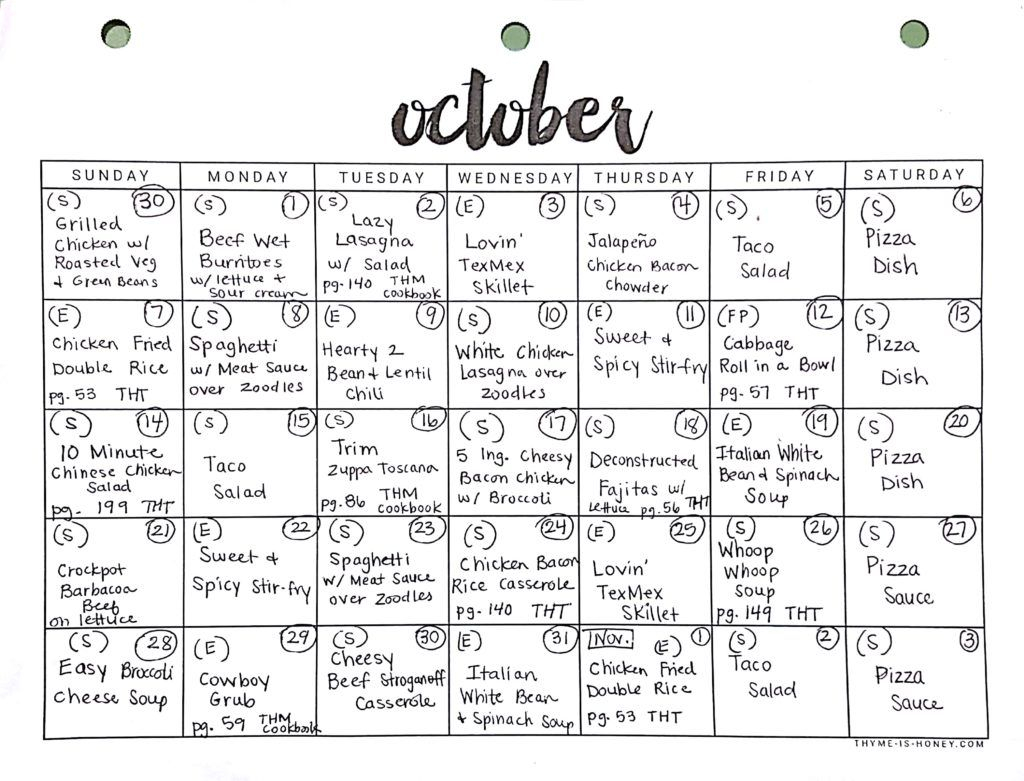 october
SUNDAY MONDAY TUESDAY WEDNESDAY THURSDAY FRIDAY SATURDAY
(S) 30
Grilled
Chicken w/
Roasted Veg
+ Green Beans
(S) 1
Beef Wet
Burritoes
w/ lettuce +
sour cream
(S) 2
Lazy
Lasagna
w/ Salad
pg. 140 THM
cookbook
(E) 3
Lovin'
TexMex
Skillet
(S) 4
Jalapeño
Chicken Bacon
Chowder
(S) 5
Taco
Salad
(S) 6
Pizza
Dish
(E) 7
Chicken Fried
Double Rice
pg. 53 THT
(S) 8
Spaghetti
w/ Meat Sauce
over Zoodles
(E) 9
Hearty 2
Bean + Lentil
Chili
(S) 10
White Chicken
Lasagna over
Zoodles
(E) 11
Sweet +
Spicy Stir-fry
(FP) 12
Cabbage
Roll in a Bowl
pg. 57 THT
(S) 13
Pizza
Dish
(S) 14
10 Minute
Chinese Chicken
Salad
pg. 199 THT
(S) 15
Taco
Salad
(S) 16
Trim
Zuppa Toscana
pg. 86 THM
cookbook
(S) 17
5 Ing. Cheesy
Bacon Chicken
w/ Broccoli
(S) 18
Deconstructed
Fajitas w/
lettuce pg. 56 THT
(E) 19
Italian White
Bean + Spinach
Soup
(S) 20
Pizza
Dish
(S) 21
Crockpot
Barbacoa
Beef
on lettuce
(E) 22
Sweet +
Spicy Stir-fry
(S) 23
Spaghetti
w/ Meat Sauce
over Zoodles
(S) 24
Chicken Bacon
Rice Casserole
pg. 140 THT
(E) 25
Lovin'
TexMex
Skillet
(S) 26
Whoop
Whoop
Soup
pg. 149 THT
(S) 27
Pizza
Sauce
(S) 28
Easy Broccoli
Cheese Soup
(E) 29
Cowboy
Grub
pg. 59 THM
Cookbook
(S) 30
Cheesy
Beef Stroganoff
Casserole
(E) 31
Italian
White Bean
+ Spinach Soup
Nov. (E) 1
Chicken Fried
Double Rice
pg. 53 THT
(S) 2
Taco
Salad
(S) 3
Pizza
Sauce
THYME-IS-HONEY.COM